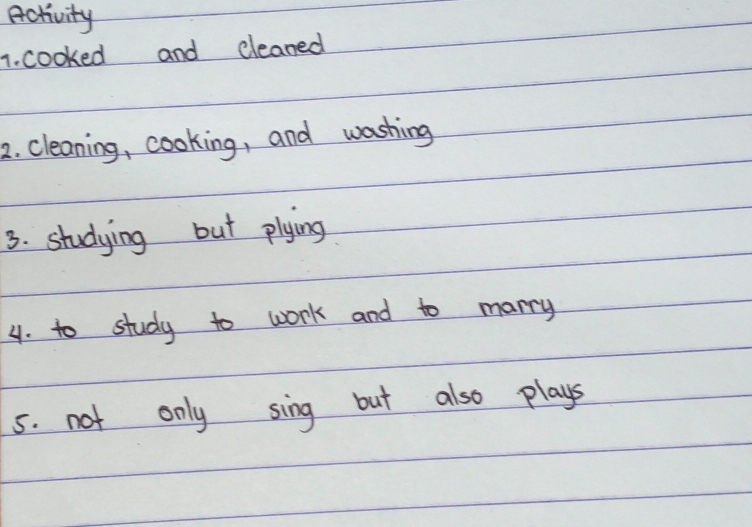 Activity
1. cooked and cleaned
2. cleaning, cooking, and washing
3. studying but plying
4. to study to work and to marry
5. not only sing but also plays